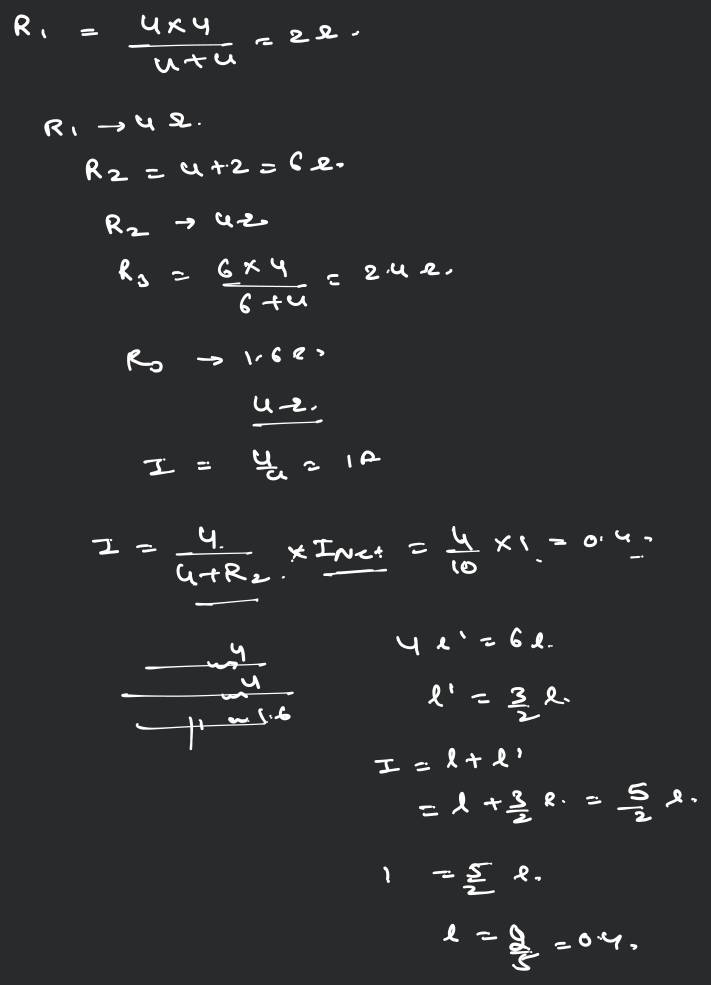 R₁ = 4×4 / 4+4 = 2Ω.
R₁ → 4Ω.
R₂ = 4+2 = 6Ω.
R₂ → 4Ω
R₃ = 6×4 / 6+4 = 2.4Ω.
R₃ → 1.6Ω
4Ω.
I = 4/4 = 1A
I = 4 / 4+R₂ × INet = 4/10 × 1 = 0.4
4
4
1.6
4l' = 6l.
l' = 3/2 l.
I = l + l'
= l + 3/2 l. = 5/2 l.
1 = 5/2 l.
l = 2/5 = 0.4.